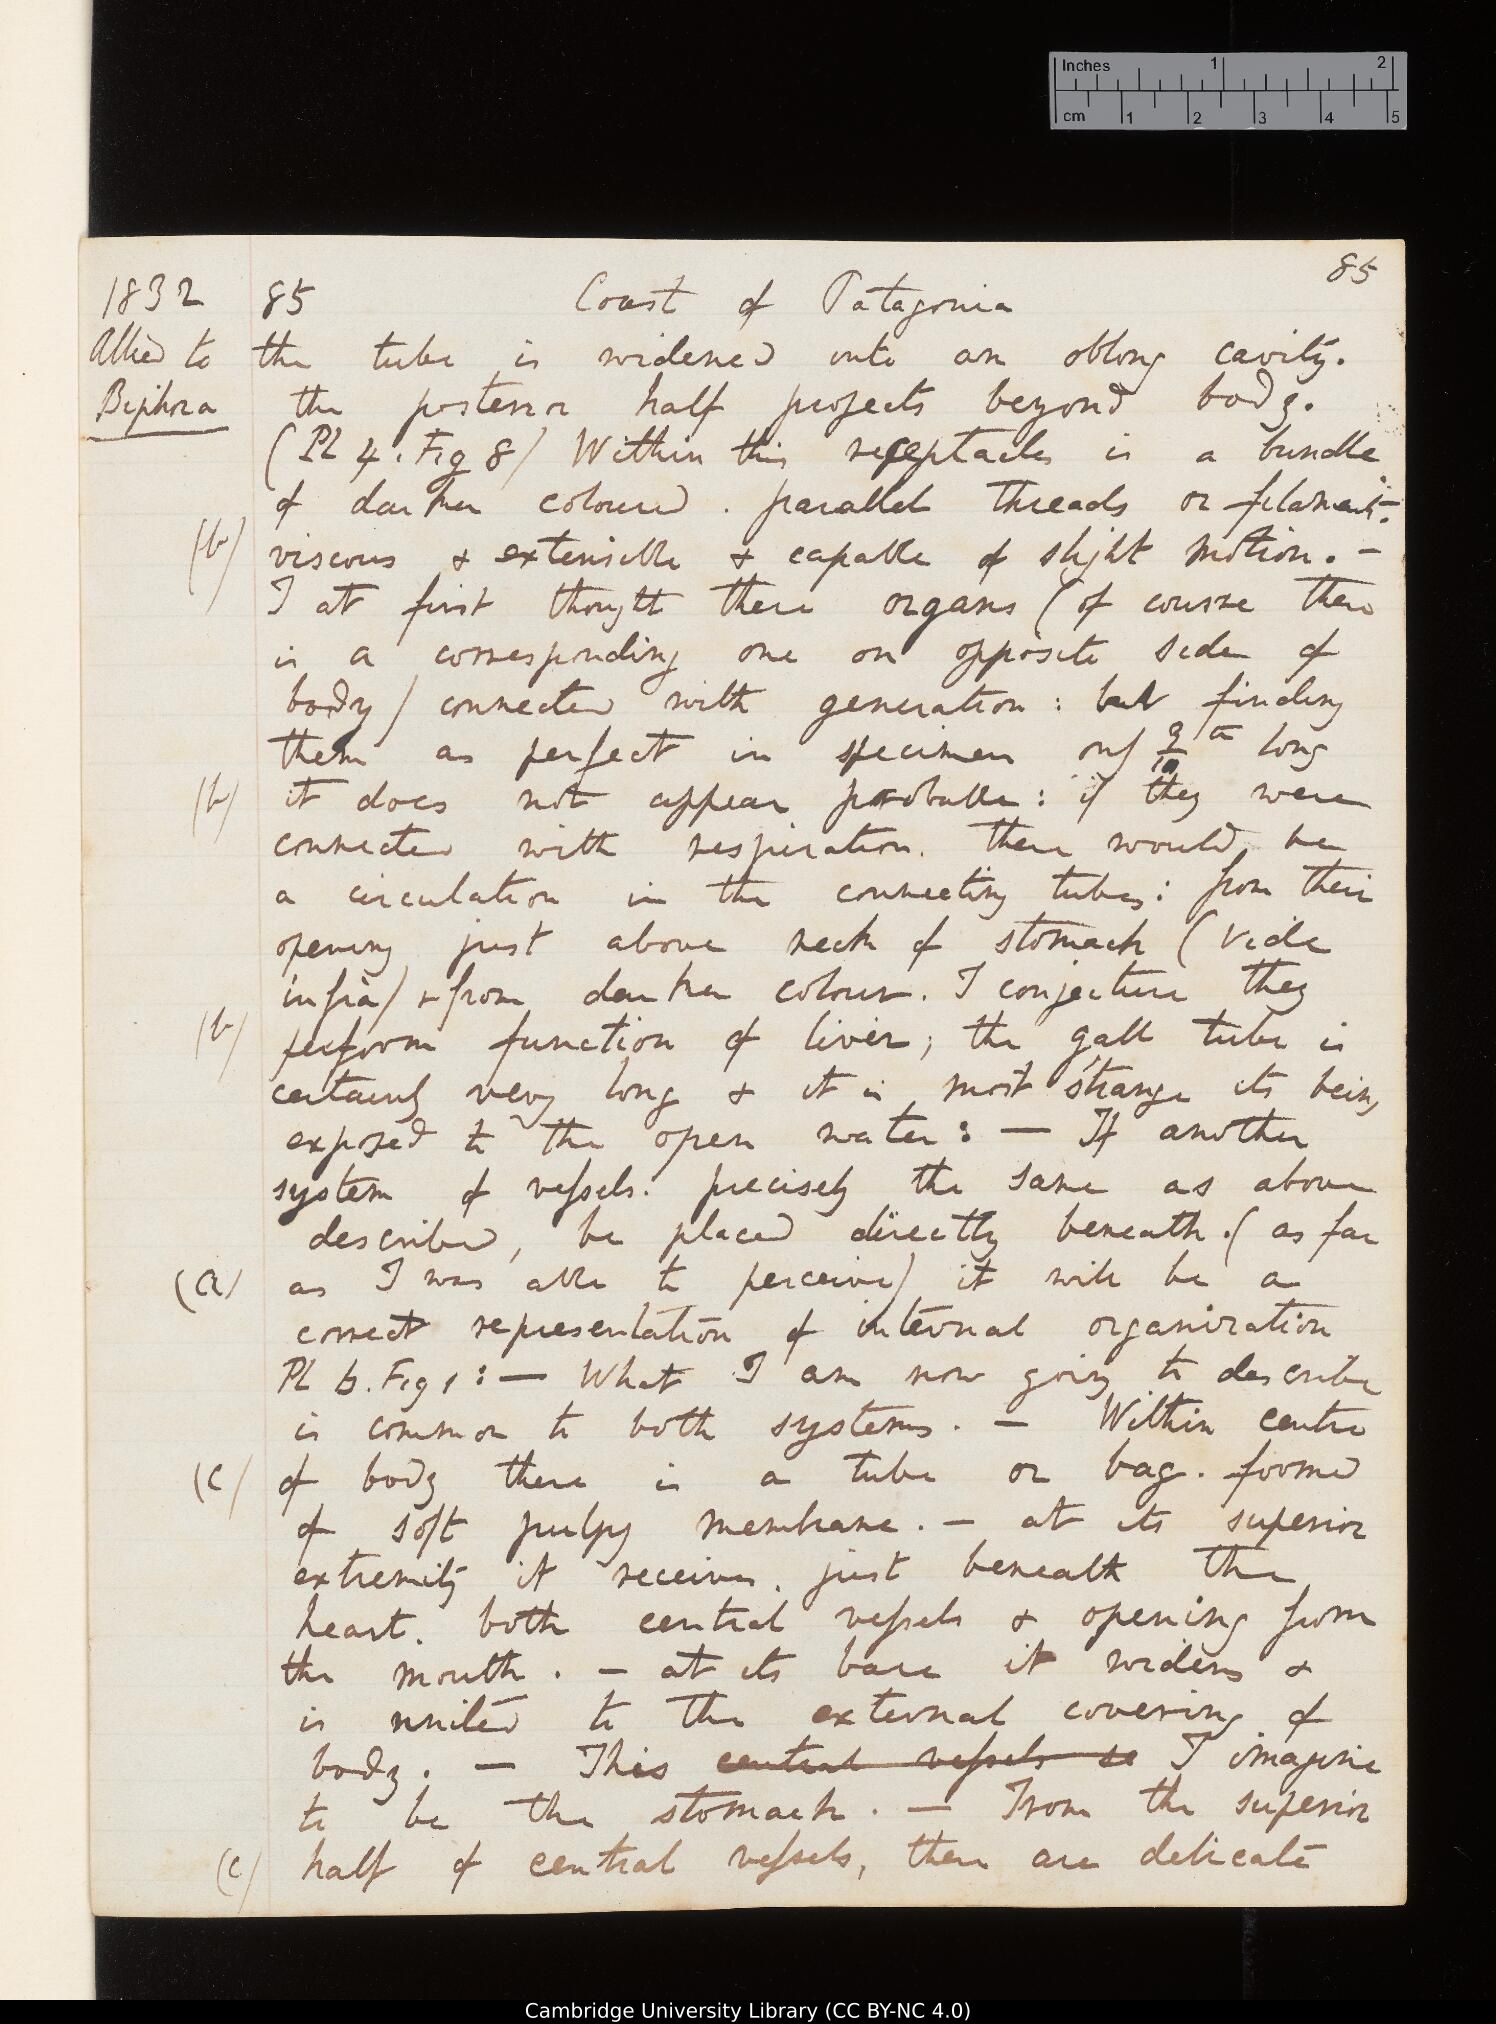 Inches 1 2
cm 1 2 3 4 5
85
1832 85 Coast of Patagonia
Allied to the tube is widened into an oblong cavity.
Biphora the posterior half projects beyond body.
(Pl 4. Fig 8) Within this receptacles is a bundle
of darker coloured . parallel threads or filaments.
(b) viscous & extensible & capable of slight motion. —
I at first thought these organs (of course there
is a corresponding one on opposite side of
body) connected with generation: but finding
them as perfect in specimen only th long
(b) it does not appear probable: if they were
connected with respiration. there would be
a circulation in the connecting tubes: from their
opening just above neck of stomach (vide
infra) & from darker colour. I conjecture they
(b) perform function of liver; the gall tube is
certainly very long & it is most strange its being
exposed to the open water: — If another
system of vessels. precisely the same as above
described, be placed directly beneath. (as far
(a) as I was able to perceive) it will be a
correct representation of internal organization
Pl 6. Fig 1: — What I am now going to describe
is common to both systems. — Within centre
(c) of body there is a tube or bag. formed
of soft pulpy membrane. — at its superior
extremity it receives. just beneath the
heart. both central vessels & opening from
the mouth. — at its base it widens &
is united to the external covering of
body. — This central vessels I imagine
to be the stomach. — From the superior
(c) half of central vessels, there are delicate
Cambridge University Library (CC BY-NC 4.0)